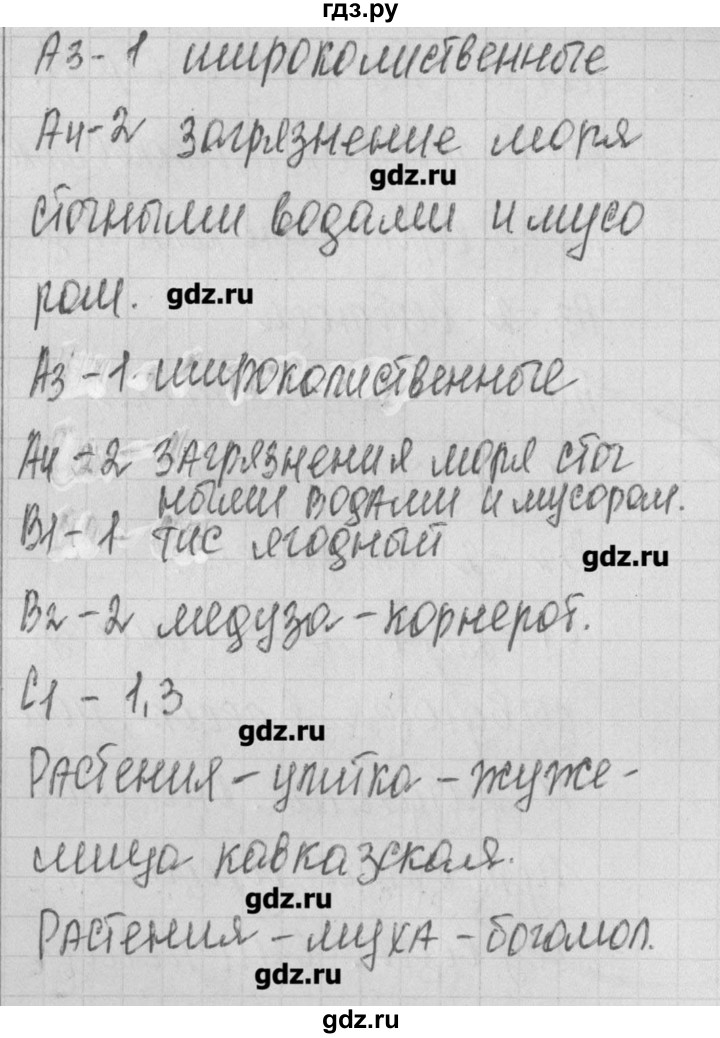 гдз.ру
А3-1 широколиственные
А4-2 загрязнение моря
gdz.ru
сточными водами и мусо
ром. gdz.ru
А3-1 широколиственные
А4-2 загрязнения моря сточ
ными водами и мусором.
В1-1 тис ягодный
gdz.ru
В2-2 медуза-корнерот.
С1-1,3
gdz.ru
Растения-улитка-жуже-
лица кавказская.
gdz.ru
Растения-муха-богомол.
gdz.ru
gdz.ru